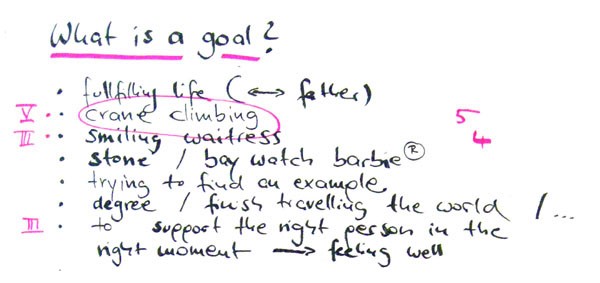 What is a goal?
• fullfilling life (⟷ father)
V • • crane climbing 5
III • • smiling waitress 4
• stone / bay watch barbie ®
• trying to find an example
• degree / finish travelling the world / ...
III • to support the right person in the
right moment ⟶ feeling well